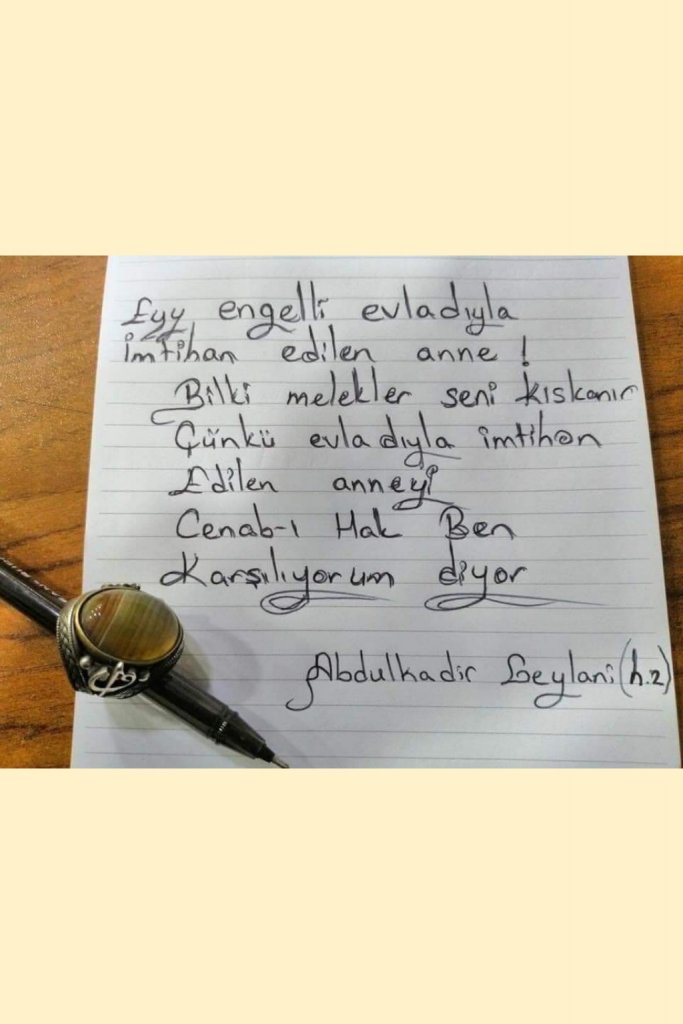 Eyy engelli evladıyla
imtihan edilen anne !
Bilki melekler seni kıskanır
Çünkü evladıyla imtihan
Edilen anneyi
Cenab-ı Hak Ben
Karşılıyorum diyor
Abdulkadir Geylani (h.z)